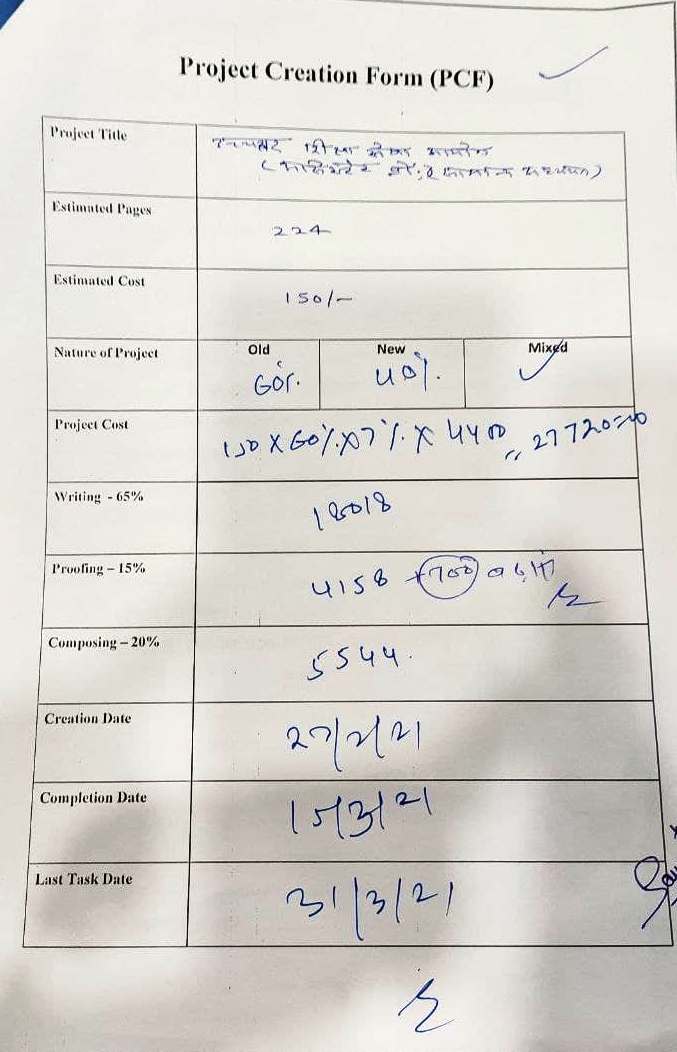 Project Creation Form (PCF)
Project Title
उच्चतर शिक्षा सेवा आयोग
सामान्य अध्ययन)
Estimated Pages
224
Estimated Cost
150/-
Nature of Project
Old New Mixed
60%. 40%.
Project Cost
150 X 60%. X 7%. X 4400 = 27720=00
Writing - 65%
18018
Proofing – 15%
4158 + 700
Composing – 20%
5544.
Creation Date
27/2/21
Completion Date
15/3/21
Last Task Date
31/3/21